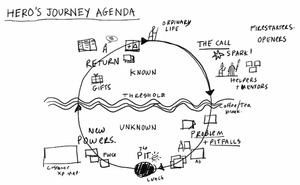 HERO'S JOURNEY AGENDA
ORDINARY
LIFE
FIRESTARTERS.
OPENERS
A
RETURN
THE CALL
SPARK!
KNOWN
HELPERS
+ MENTORS
GIFTS
THRESHOLD
Coffee/tea
break
UNKNOWN
NEW
POWERS.
PROBLEM
+ PITFALLS
THE
PIT
Lunch